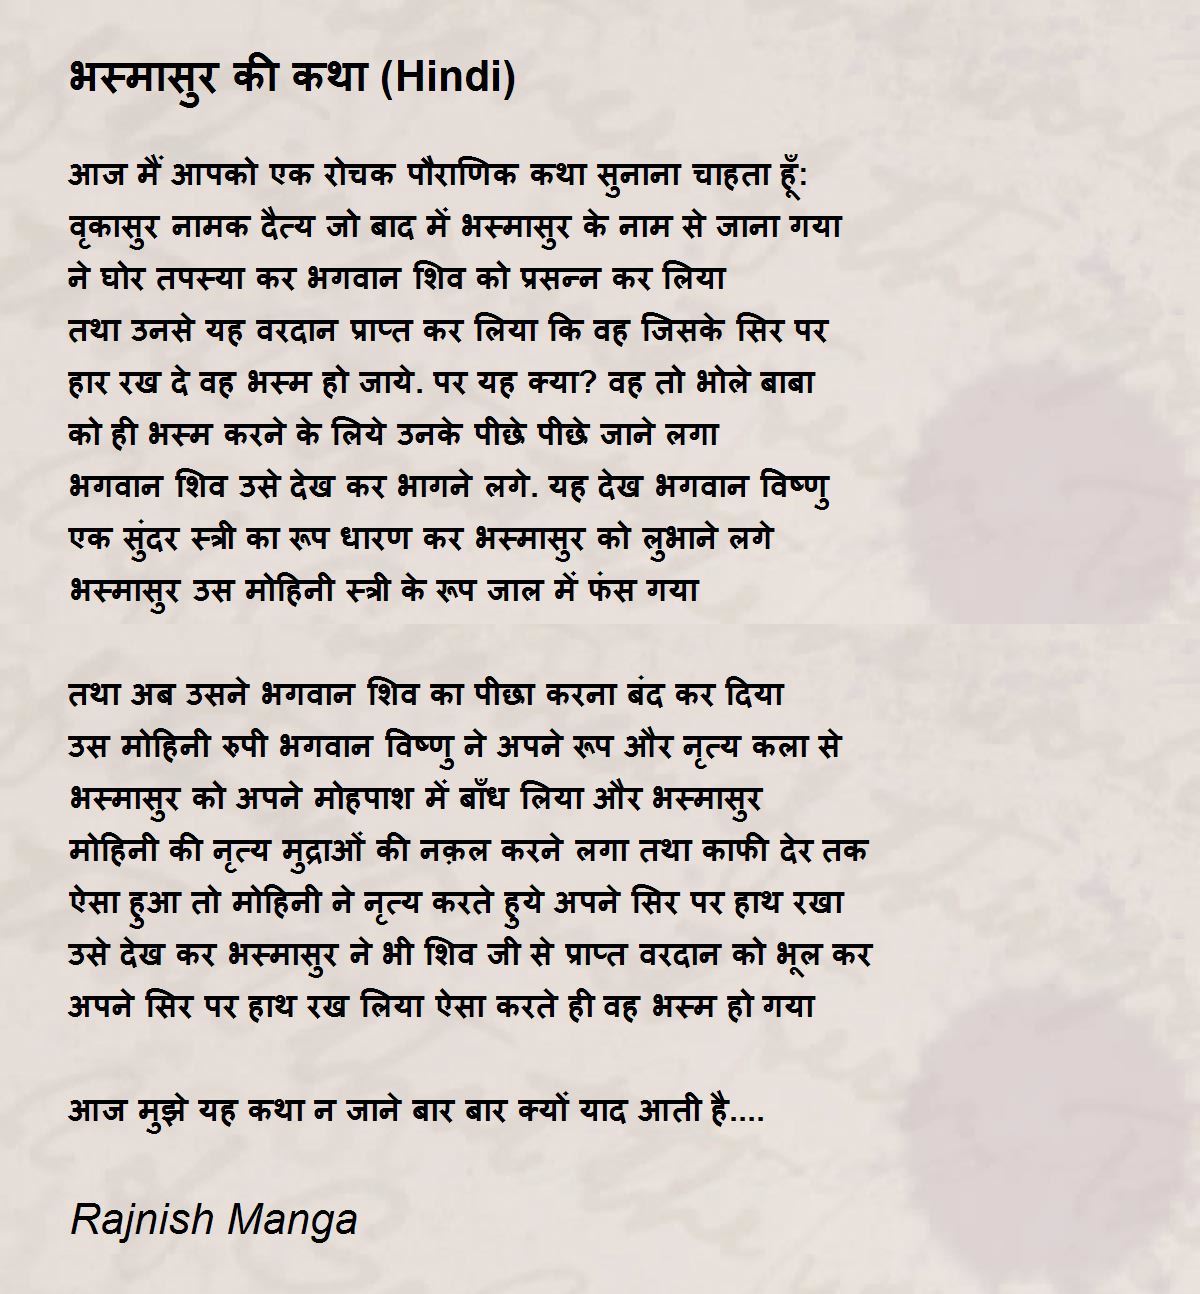 भस्मासुर की कथा (Hindi)
आज मैं आपको एक रोचक पौराणिक कथा सुनाना चाहता हूँ:
वृकासुर नामक दैत्य जो बाद में भस्मासुर के नाम से जाना गया
ने घोर तपस्या कर भगवान शिव को प्रसन्न कर लिया
तथा उनसे यह वरदान प्राप्त कर लिया कि वह जिसके सिर पर
हार रख दे वह भस्म हो जाये. पर यह क्या? वह तो भोले बाबा
को ही भस्म करने के लिये उनके पीछे पीछे जाने लगा
भगवान शिव उसे देख कर भागने लगे. यह देख भगवान विष्णु
एक सुंदर स्त्री का रूप धारण कर भस्मासुर को लुभाने लगे
भस्मासुर उस मोहिनी स्त्री के रूप जाल में फंस गया
तथा अब उसने भगवान शिव का पीछा करना बंद कर दिया
उस मोहिनी रुपी भगवान विष्णु ने अपने रूप और नृत्य कला से
भस्मासुर को अपने मोहपाश में बाँध लिया और भस्मासुर
मोहिनी की नृत्य मुद्राओं की नक़ल करने लगा तथा काफी देर तक
ऐसा हुआ तो मोहिनी ने नृत्य करते हुये अपने सिर पर हाथ रखा
उसे देख कर भस्मासुर ने भी शिव जी से प्राप्त वरदान को भूल कर
अपने सिर पर हाथ रख लिया ऐसा करते ही वह भस्म हो गया
आज मुझे यह कथा न जाने बार बार क्यों याद आती है....
Rajnish Manga